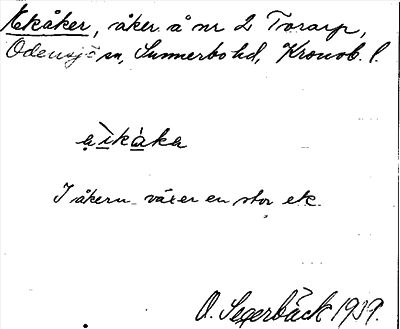 Ekåker, åker å nr 2 Torarp,
Odensjö sn, Sunnerbo hd, Kronob. l.
a̤ìkàka
I åkern växer en stor ek.
O. Segerbäck 1939.